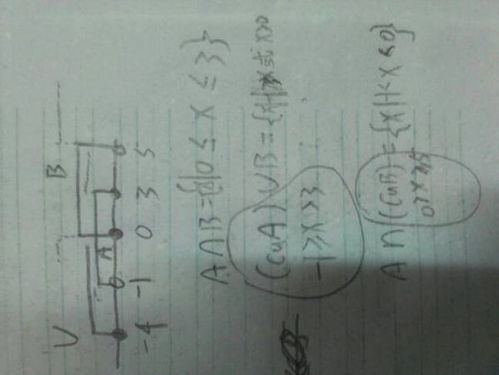 U B
A
-4 -1 0 3 5
A∩B={x|0≤x≤3}
(CuA)∪B={x| x>0
-1≥x>3
A∩(CuB)={x|-1<x<0}
0>x≥5